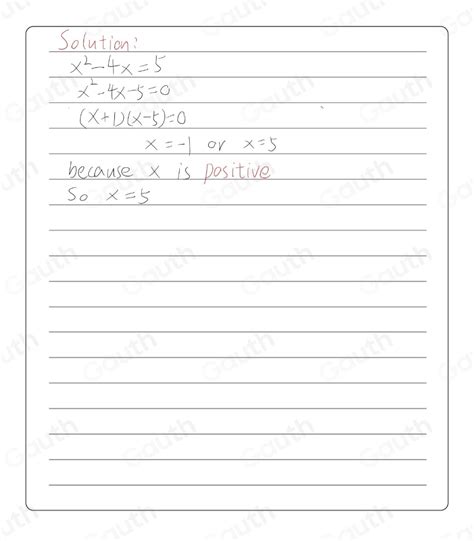 Solution:
x²-4x=5
x²-4x-5=0
(x+1)(x-5)=0
x=-1 or x=5
because x is positive
So x=5